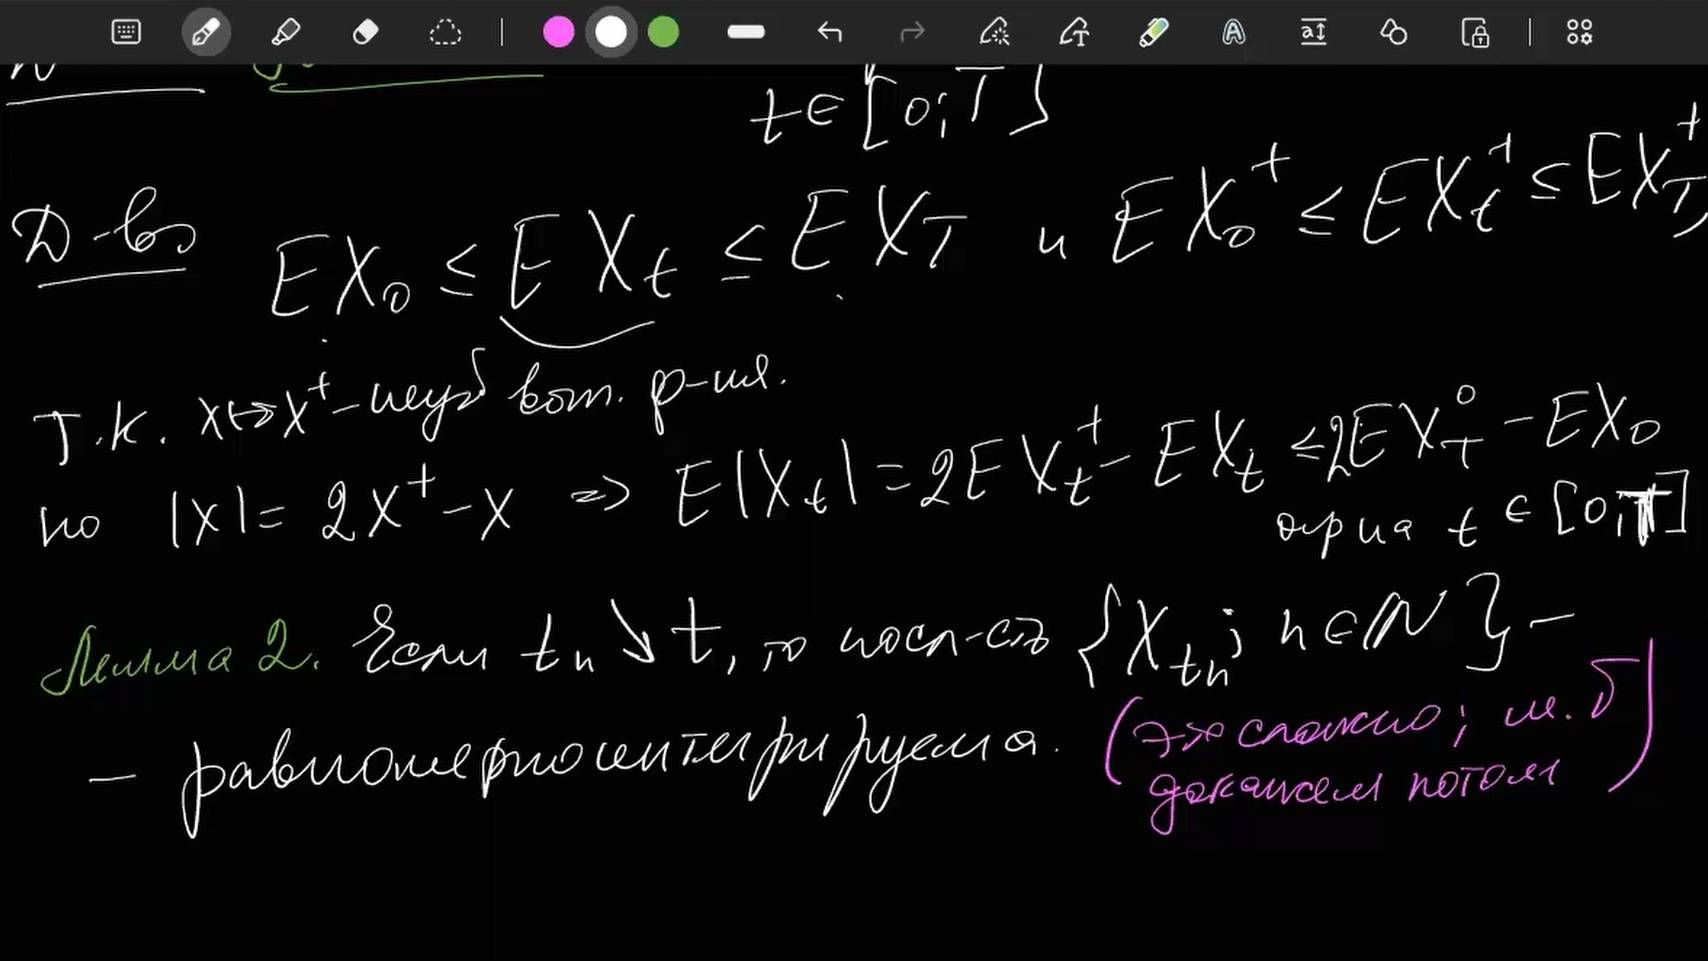 t ∈ [0; T]
Д-во EX₀ ≤ EXₜ ≤ EX_T и EX₀⁺ ≤ EXₜ⁺ ≤ EX_T⁺,
т.к. x ↦ x⁺ – неуб вып. ф-ия.
но |x| = 2x⁺ – x ⇒ E|Xₜ| = 2EXₜ⁺ – EXₜ ≤ 2EX_T⁰ – EX₀
огр на t ∈ [0; T]
Лемма 2. Если tₙ ↘ t, то посл-сть {X_{tₙ}; n ∈ ℕ} –
– равномерно интегрируема.
(это сложно; м. б
докажем потом)